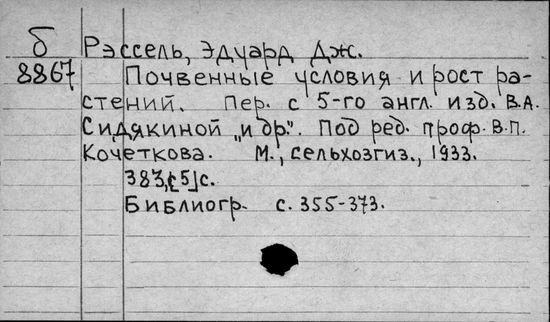 б Рэссель, Эдуард Дж.
8867 Почвенные условия и рост ра-
стений. Пер. с 5-го англ. изд. В.А.
Сидякиной „и др.". Под ред. проф. В.П.
Кочеткова. М., сельхозгиз., 1933.
383,[5]с.
Библиогр. с. 355-373.